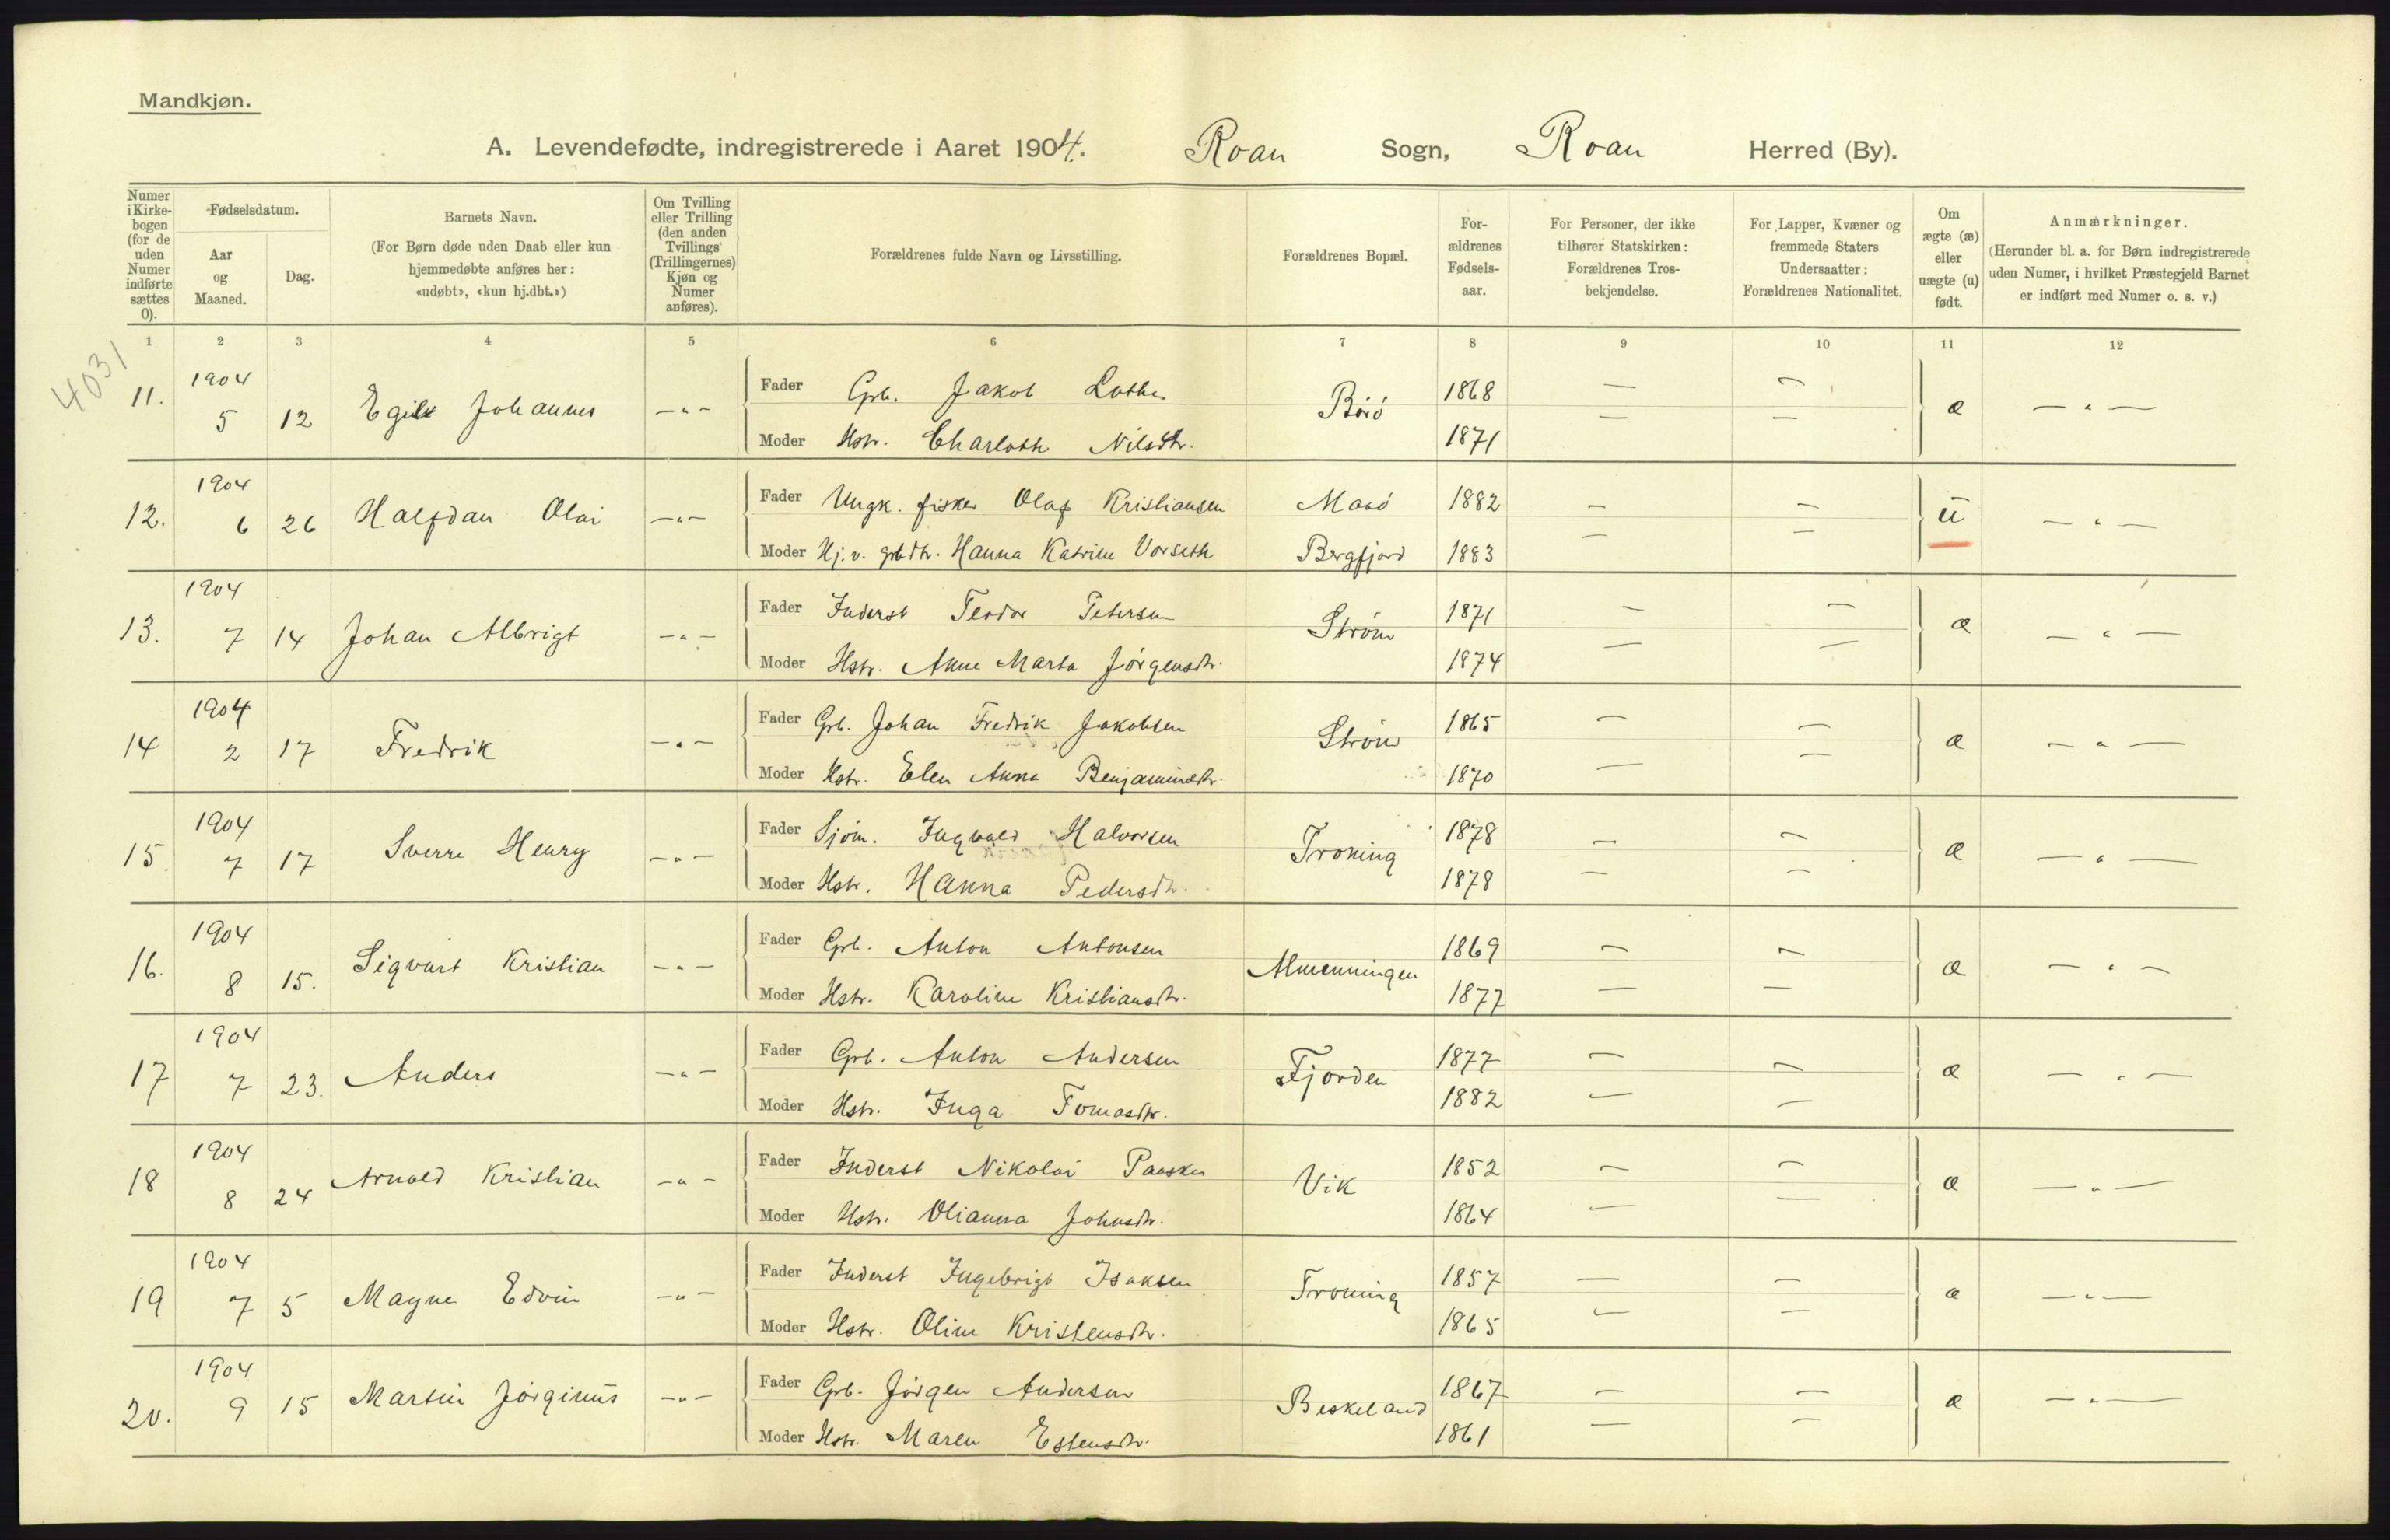 Mandkjøn.
A. Levendefødte, indregistrerede i Aaret 1904. Roan Sogn, Roan Herred (By).
Numer i Kirke- bogen (for de uden Numer indførte sættes 0).
Fødselsdatum.
Aar og Maaned.
Dag.
Barnets Navn.
(For Børn døde uden Daab eller kun hjemmedøbte anføres her: «udøbt», «kun hj.dbt.»)
Om Tvilling eller Trilling (den anden Tvillings (Trillingernes) Kjøn og Numer anføres).
Forældrenes fulde Navn og Livsstilling.
Forældrenes Bopæl.
For- ældrenes Fødsels- aar.
For Personer, der ikke tilhører Statskirken: Forældrenes Tros- bekjendelse.
For Lapper, Kvæner og fremmede Staters Undersaatter: Forældrenes Nationalitet.
Om ægte (æ) eller uægte (u) født.
Anmærkninger.
(Herunder bl. a. for Børn indregistrerede uden Numer, i hvilket Præstegjeld Barnet er indført med Numer o. s. v.)
1 2 3 4 5 6 7 8 9 10 11 12
4031
11. 1904 5 12 Egil Johannes —"— Fader Grb. Jakob 1868 — — æ —"—
Moder Hstr. Charlotte Nilsdtr. 1871 — —
12. 1904 6 26 Halfdan Olai —"— Fader Ungk. fisker Olaf Kristiansen 1882 — — ü —"—
Moder Hj. v. grb dtr. Hanna Katrine Vorseth Bergfjord 1883 — —
13. 1904 7 14 Johan Albrigt —"— Fader Inderst Teodor Petersen Strøm 1871 — — æ —"—
Moder Hstr. Anne Marta Jørgensdtr. 1874 — —
14 1904 2 17 Fredrik —"— Fader Grb. Johan Fredrik Jakobsen Strøm 1865 — — æ —"—
Moder Hstr. Elen Anna Benjaminsdtr. 1870 — —
15. 1904 7 17 Sverre Henry —"— Fader Sjøm. Ingvald Halvorsen Troning 1878 — — æ —"—
Moder Hstr. Hanna Pedersdtr. 1878 — —
16. 1904 8 15. Sigvart Kristian —"— Fader Grb. Anton Antonsen Almenningen 1869 — — æ —"—
Moder Hstr. Karoline Kristiansdtr. 1877 — —
17 1904 7 23. Anders —"— Fader Grb. Anton Andersen Fjorden 1877 — — æ —"—
Moder Hstr. Inga Tomasdtr. 1882 — —
18 1904 8 24 Arnold Kristian —"— Fader Inderst Nikolai Paaske Vik 1852 — — æ —"—
Moder Hstr. Olianna Johnsdtr. 1864 — —
19 1904 7 5 Magne Edvin —"— Fader Inderst Ingebrigt Isaksen Troning 1857 — — æ —"—
Moder Hstr. Oline Kristensdtr. 1865 — —
20. 1904 9 15 Martin Jørginus —"— Fader Grb. Jørgen Andersen Beskeland 1867 — — æ —"—
Moder Hstr. Maren Estensdtr. 1861 — —